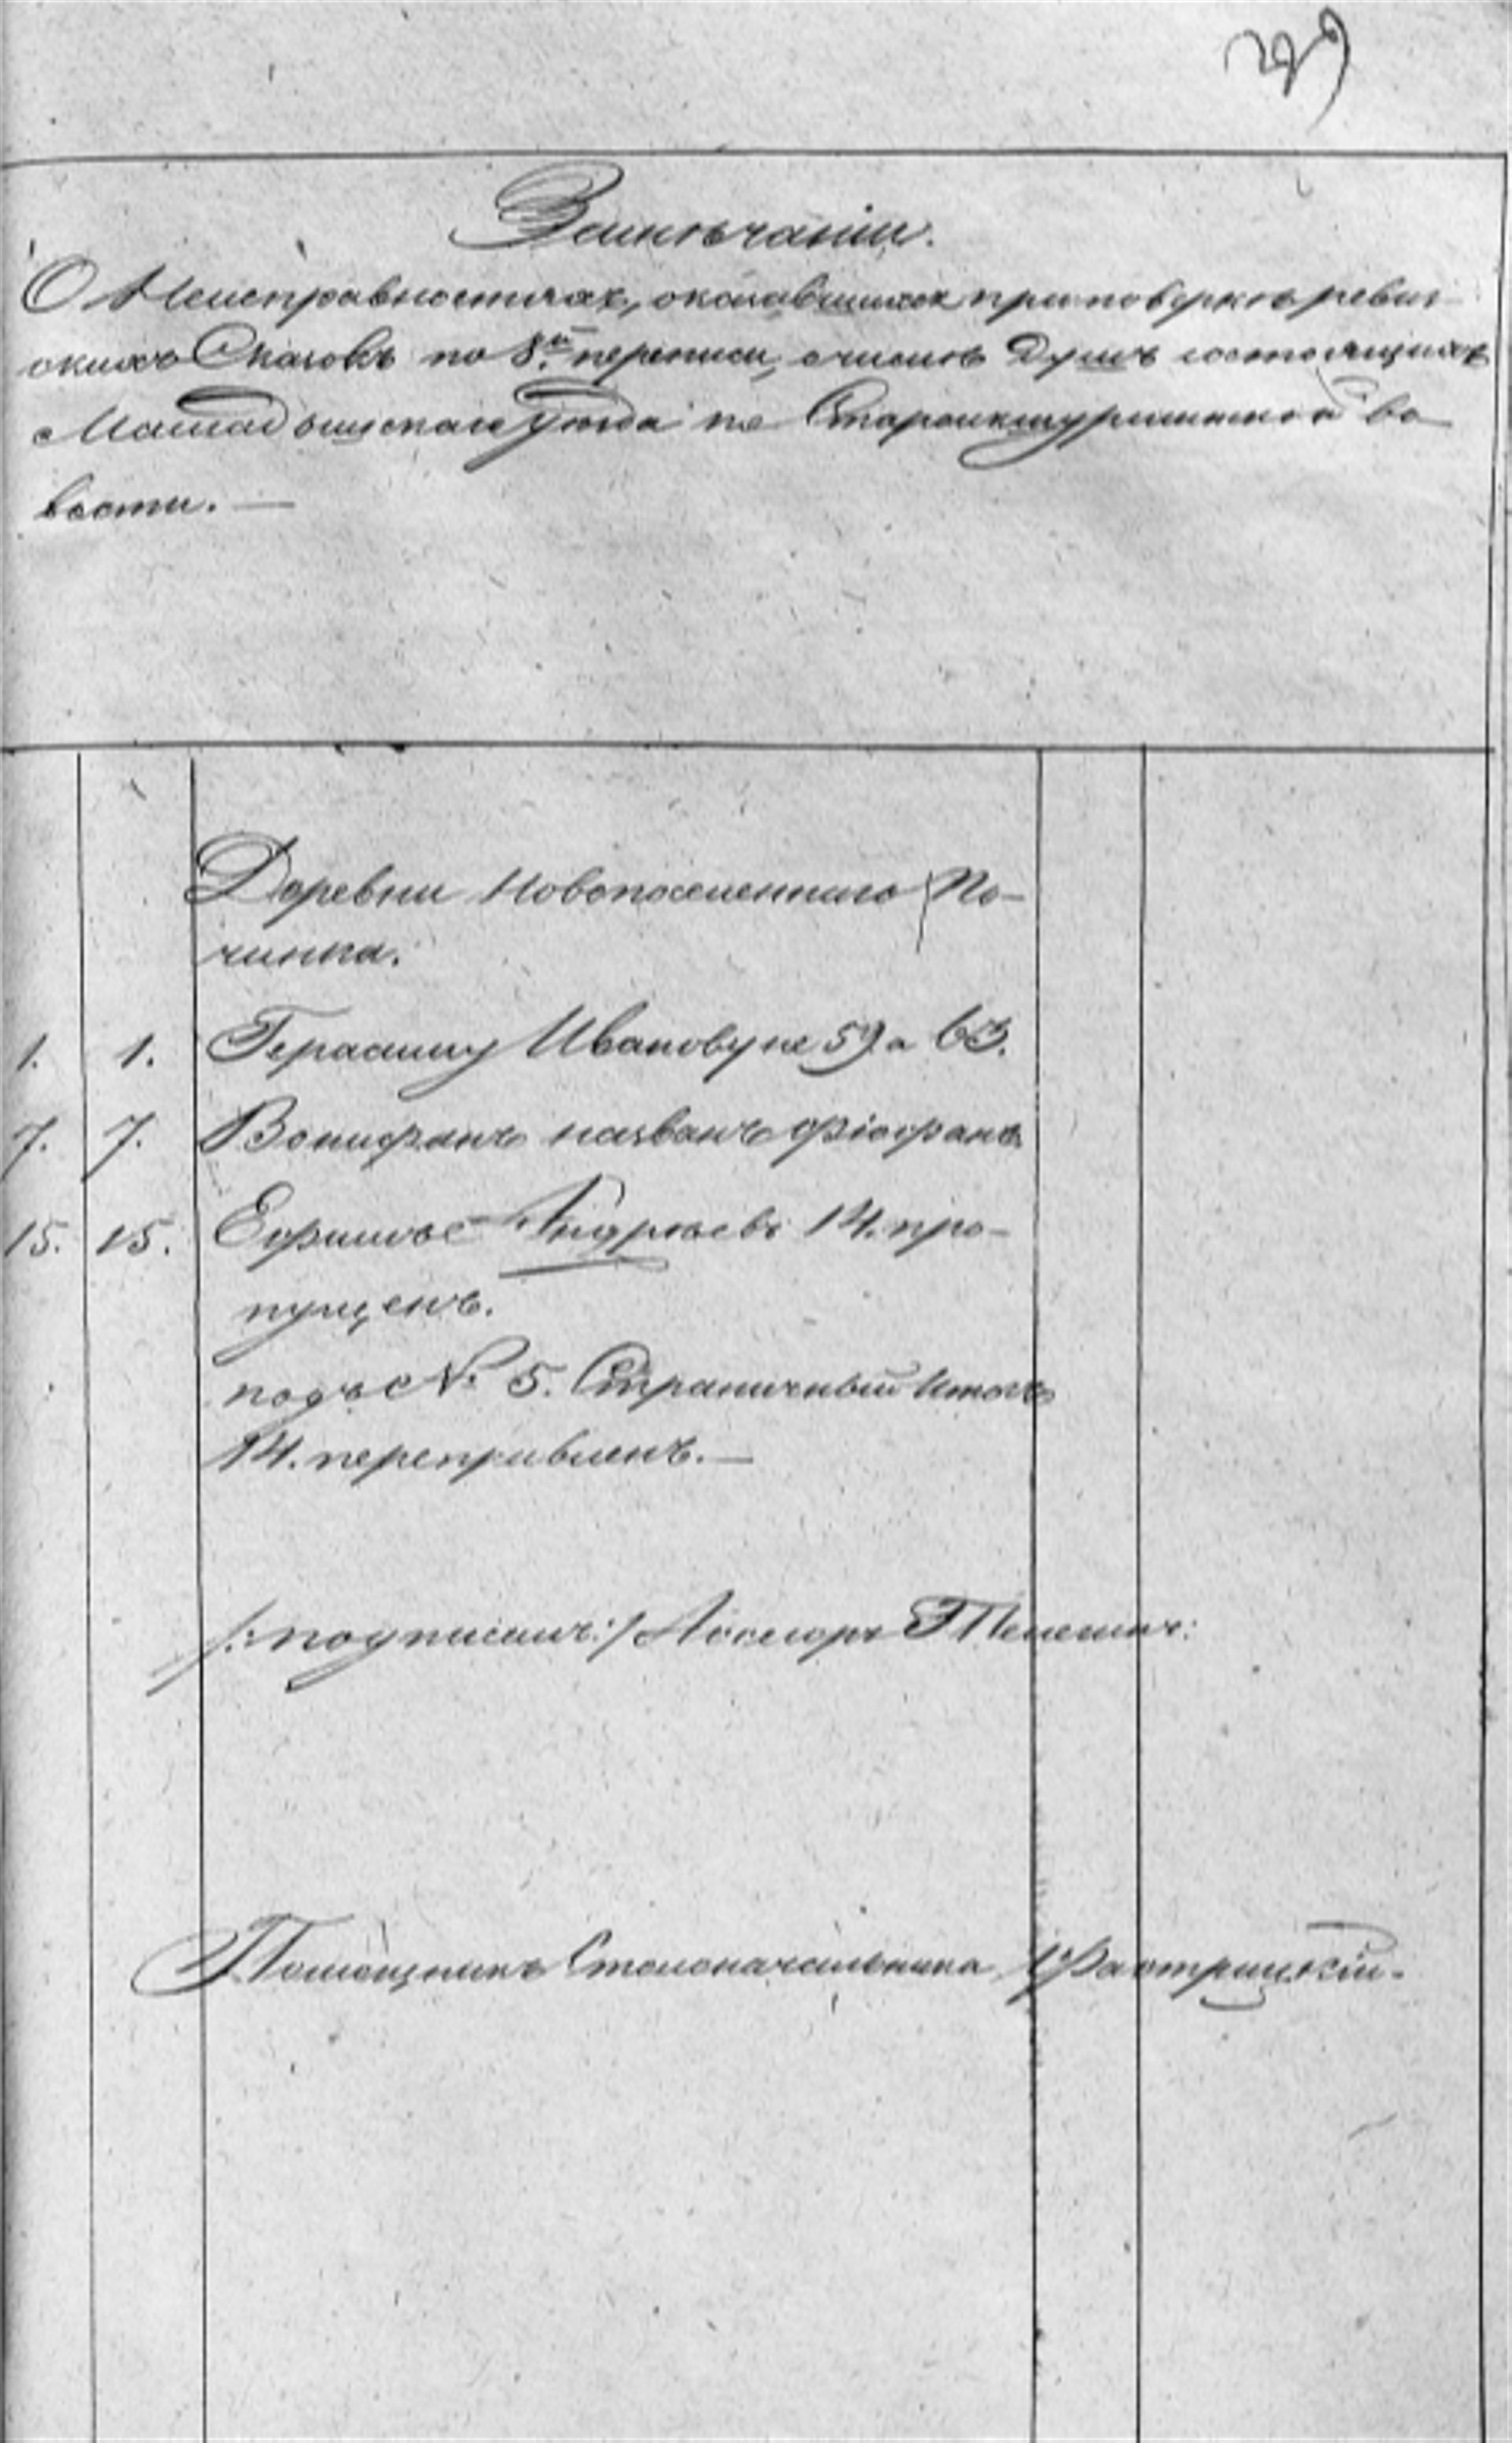 Замѣчаніи.
О Неисправностяхъ, оказавшихся при повѣркѣ ревиз-
скихъ Сказокъ по 8.й переписи, о числѣ Душъ состоящихъ
Малмыжскаго Уѣзда по во
лости. —
Деревни Новопоселеннаго По-
чинка.
1. 1. Герасиму Иванову не 59 а 63.
7. 7. Вонифанъ названъ Фіофанъ
15. 15. Ефимъ Андрѣевъ 14. про-
пущенъ.
подъ № 5. Страничный Итогъ
14. переправленъ. —
/:подписалъ:/ Ассесоръ
Помощникъ Столоначальника